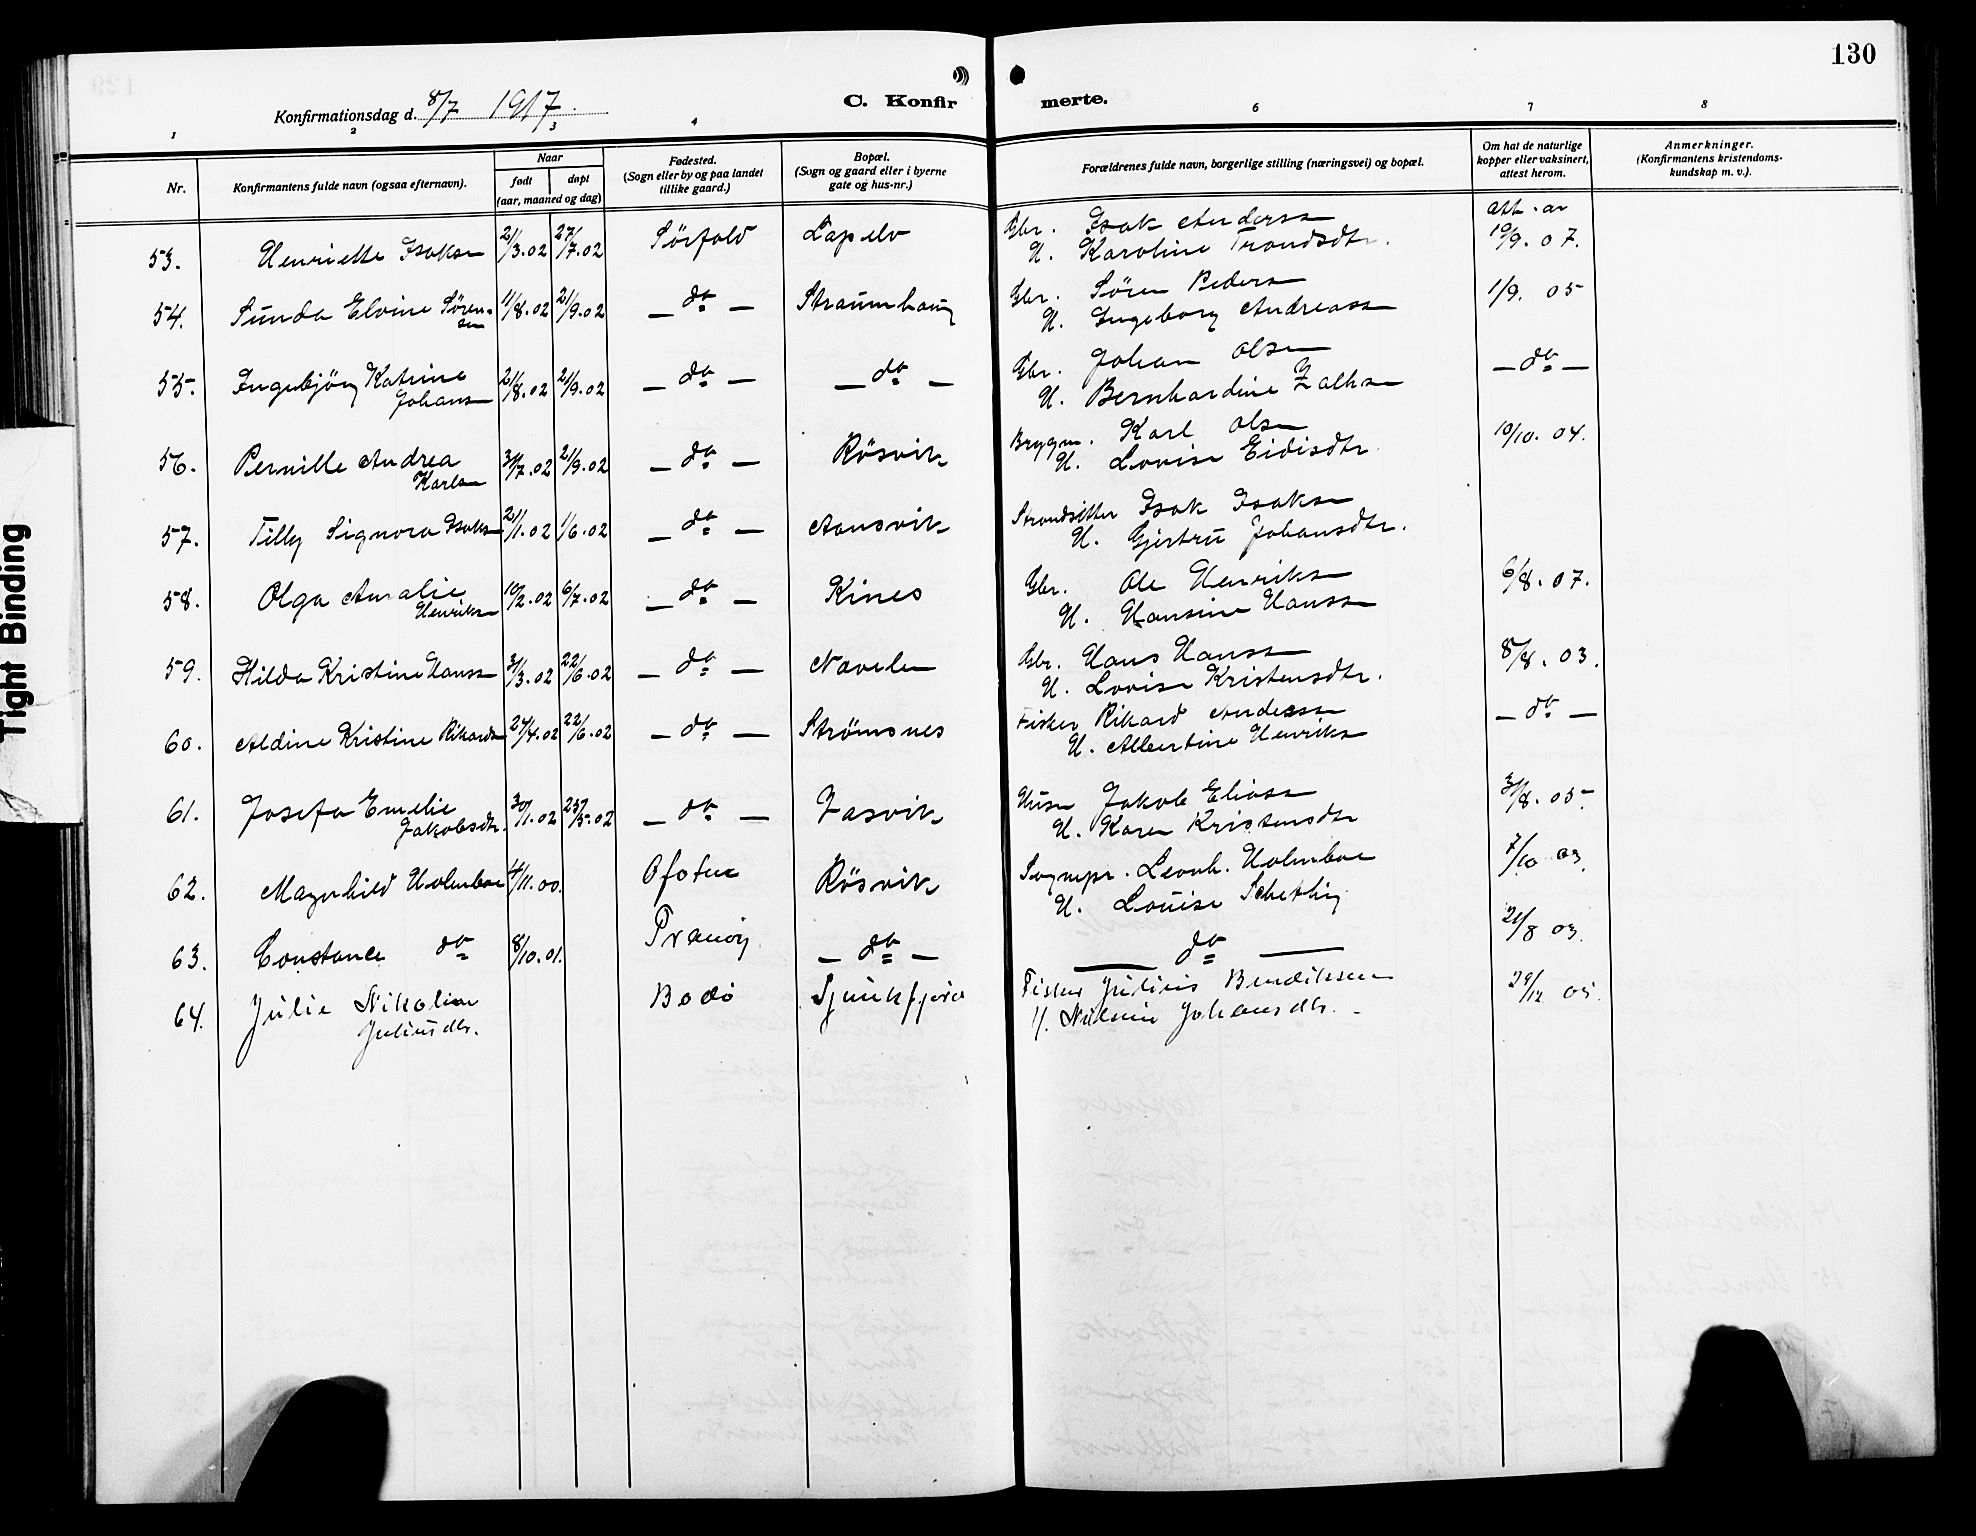 130
Konfirmationsdag d. 8/7 1917.
C. Konfirmerte.
1 2 3 4 6 7 8
Nr.
Konfirmantens fulde navn (ogsaa efternavn).
Naar
født
døpt
(aar, maaned og dag)
Fødested.
(Sogn eller by og paa landet
tillike gaard.)
Bopæl.
(Sogn og gaard eller i byerne
gate og hus-nr.)
Forældrenes fulde navn, borgerlige stilling (næringsvei) og bopæl.
Om hat de naturlige
kopper eller vaksinert,
attest herom.
Anmerkninger.
(Konfirmantens kristendoms-
kundskap m. v.).
53. Henriette Isaksen 2/3.02 27/7.02 Sørfold Lapelv Gbr. Isak Anderssn att. av
H. Karoline Trondsdtr. 10/9. 07.
54. Sunda Elvine Søren-
sen 11/8.02 21/9.02 — do — Straumhaug Gbr. Søren Pedersn 1/9. 05
H. Ingeborg Andreassn
55. Ingebjørg Katrine
Johansn 21/8.02 21/9.02 — do — — do — Gbr. Johan Olsen — do —
H. Bernhardine
56. Pernille Andrea
Karlsn 31/7.02 21/9.02 — do — Røsvik Brygm. Karl Olsen 10/10. 04.
H. Lovise Eidisdtr.
57. Tilly Signora Isaksn 21/1.02 1/6.02 — do — Aansvik Strandsitter Isak Isaksn
H. Gjertru Johansdtr.
58. Olga Amalie
Henriksn 10/2.02 6/7.02 — do — Kines Gbr. Ole Henriksn 6/8. 07.
H. Hansine Hanssn
59. Hilda Kristine Hanssn 31/3.02 22/6.02 — do — Navelen Gbr. Hans Hanssn 8/8. 03.
H. Lovise Kristensdtr.
60. Aldine Kristine Rikardsn 24/4.02 22/6.02 — do — Strømsnes Fisker Rikard Anderssn — do —
H. Albertine Henriksn
61. Josefa Emelie
Jakobsdtr. 30/1.02 25/5.02 — do — Vasvik Husm Jakob Eliassn 31/8. 05.
H. Karen Kristensdtr
62. Magnhild Holmboe 4/11.00. Ofoten Røsvik Sognepr. Leonh. Holmboe 7/10 03.
H. Louise Schetlig
63. Constance do 8/10.01. Tranøy — do — — do — 21/8 03.
64. Julie Nikoline
Juliusdtr. Bodø Tjeukfjord Fisker Julius Bendiksen 29/12 05.
H. Johansdtr.
Tight Binding